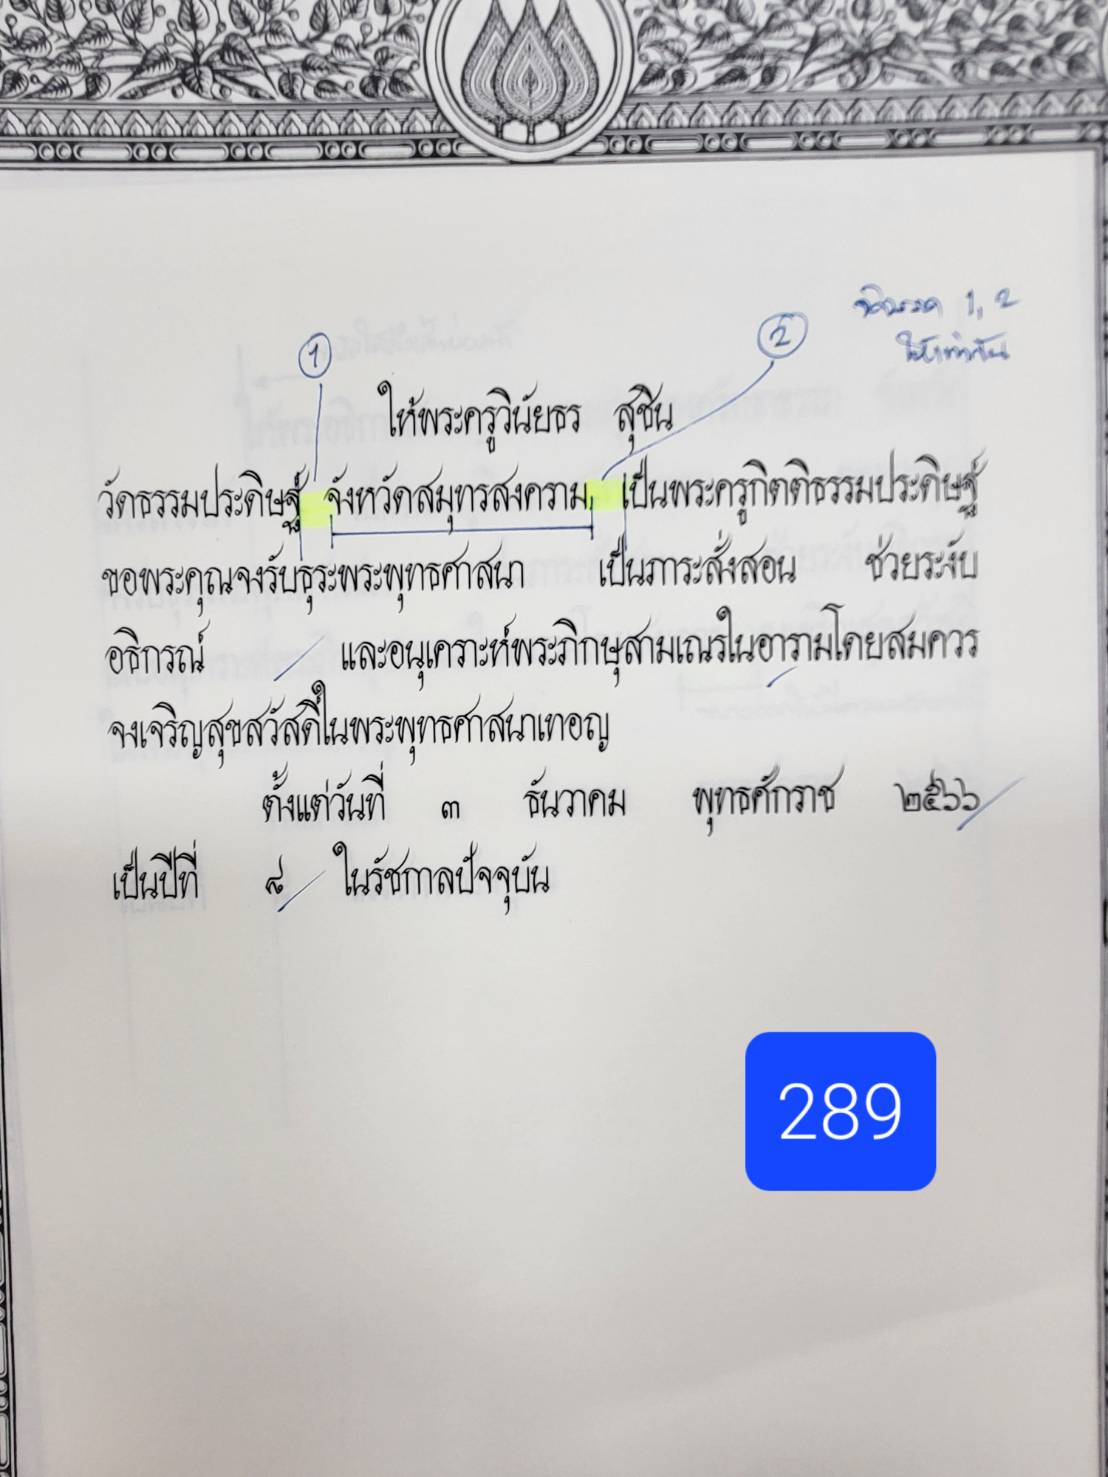 จัดวรรค 1, 2
ให้เท่ากัน
1
2
ให้พระครูวินัยธร สุชิน
วัดธรรมประดิษฐ์ จังหวัดสมุทรสงคราม เป็นพระครูกิตติธรรมประดิษฐ์
ขอพระคุณจงรับธุระพระพุทธศาสนา เป็นภาระสั่งสอน ช่วยระงับ
อธิกรณ์ และอนุเคราะห์พระภิกษุสามเณรในอารามโดยสมควร
จงเจริญสุขสวัสดิ์ในพระพุทธศาสนาเทอญ
ตั้งแต่วันที่ ๓ ธันวาคม พุทธศักราช ๒๕๖๖
เป็นปีที่ ๘ ในรัชกาลปัจจุบัน
289